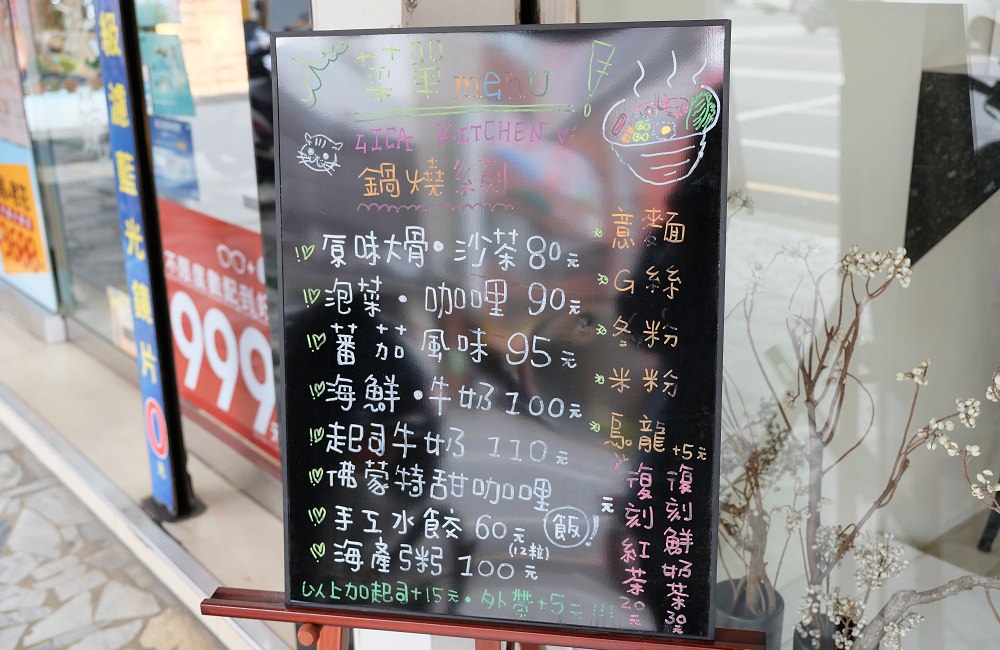 菜單 menu
LICA KITCHEN
鍋燒系列
原味大骨・沙茶 80元
泡菜・咖哩 90元
蕃茄風味 95元
海鮮・牛奶 100元
起司牛奶 110元
佛蒙特甜咖哩 元
飯!
手工水餃 60元
(12粒)
海產粥 100元
以上加起司+15元・外帶+5元!!!
意麵
G絲
冬粉
米粉
烏龍+5元
復刻紅茶20元
復刻鮮奶茶30元
級濾藍光鏡片
元
不限度數配到好
999元